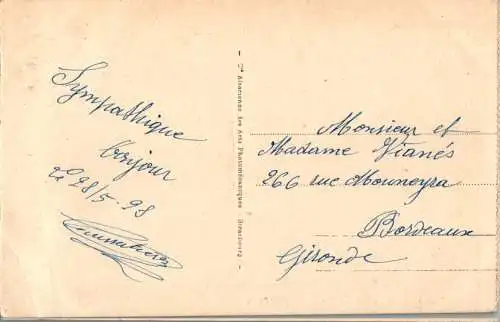 Sympathique
bonjour
le 28/5-28
Cie Alsacienne des Arts Photomécaniques - Strasbourg
Monsieur et
Madame Vianès
266 rue Mouneyra
Bordeaux
Gironde